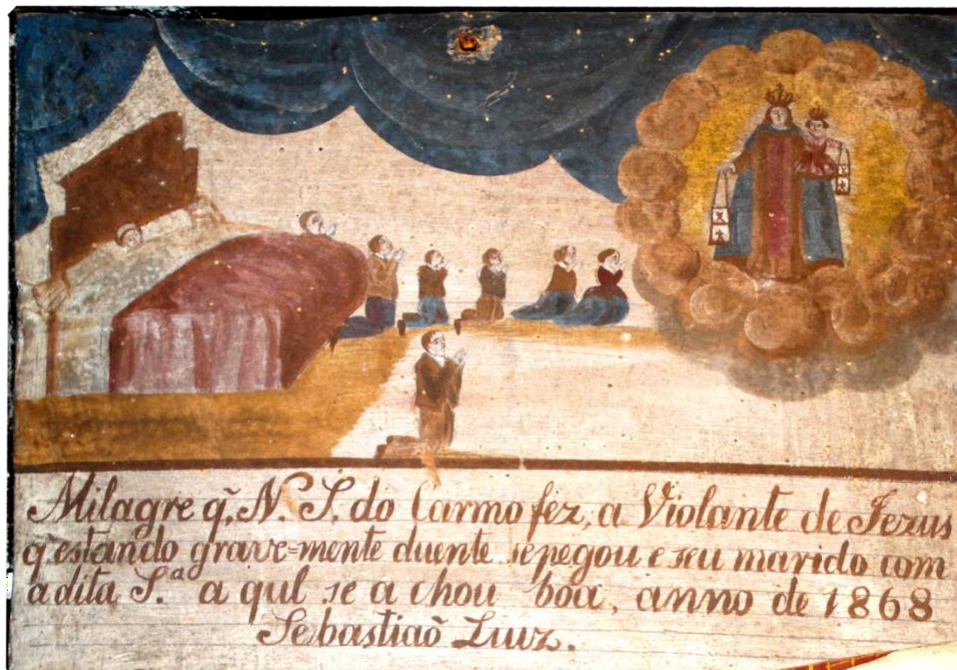 Milagre q̃, N. S. do Carmo fez, a Violante de Jezus
q estando grave=mente duente se pegou e seu marido com
a dita S.ª a qul se a chou boa, anno de 1868
Sebastiaõ Luiz.